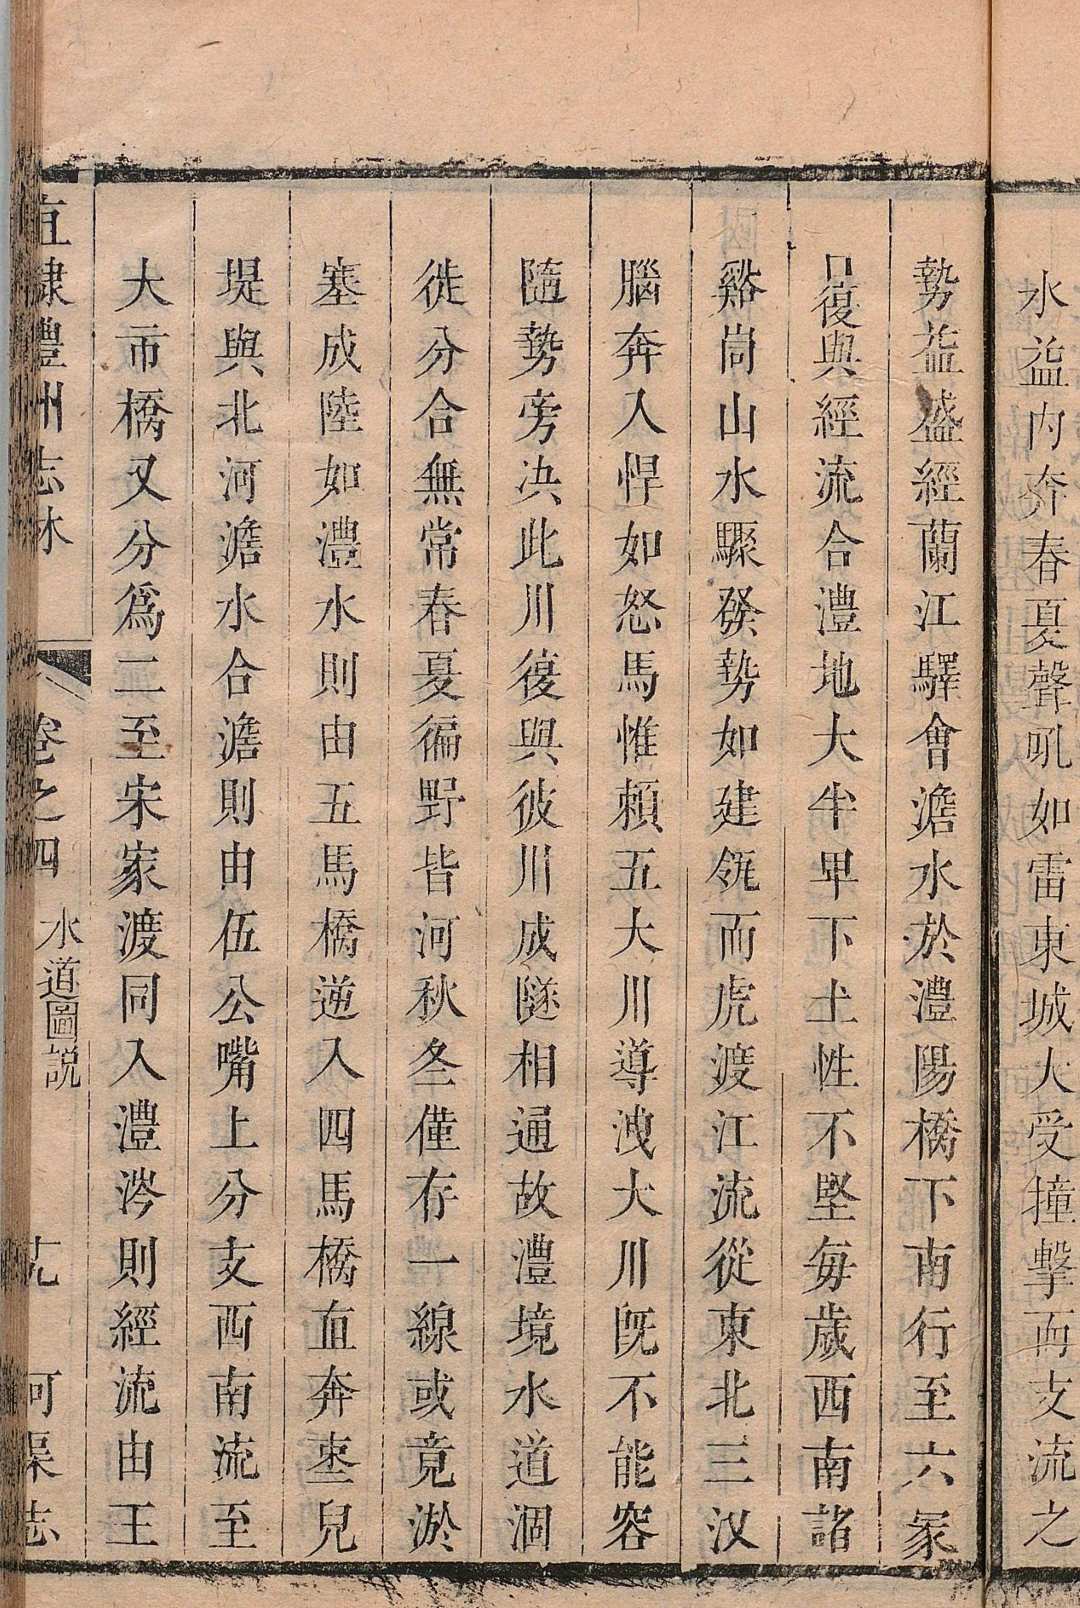 水益內奔春夏聲吼如雷東城大受撞擊而支流之
勢益盛經蘭江驛會澹水於澧陽橋下南行至六冢
口復與經流合澧地大半卑下土性不堅每歲西南諸
谿峝山水驟發勢如建瓴而虎渡江流從東北三汊
腦奔入悍如怒馬惟賴五大川導洩大川旣不能容
隨勢旁决此川復與彼川成隧相通故澧境水道涸
徙分合無常春夏徧野皆河秋冬僅存一線或竟淤
塞成陸如澧水則由五馬橋逆入四馬橋直奔棗兒
堤與北河澹水合澹則由伍公嘴上分支西南流至
大市橋又分爲二至宋家渡同入澧涔則經流由王
直隸澧州志林 卷之四 水道圖説 河渠志